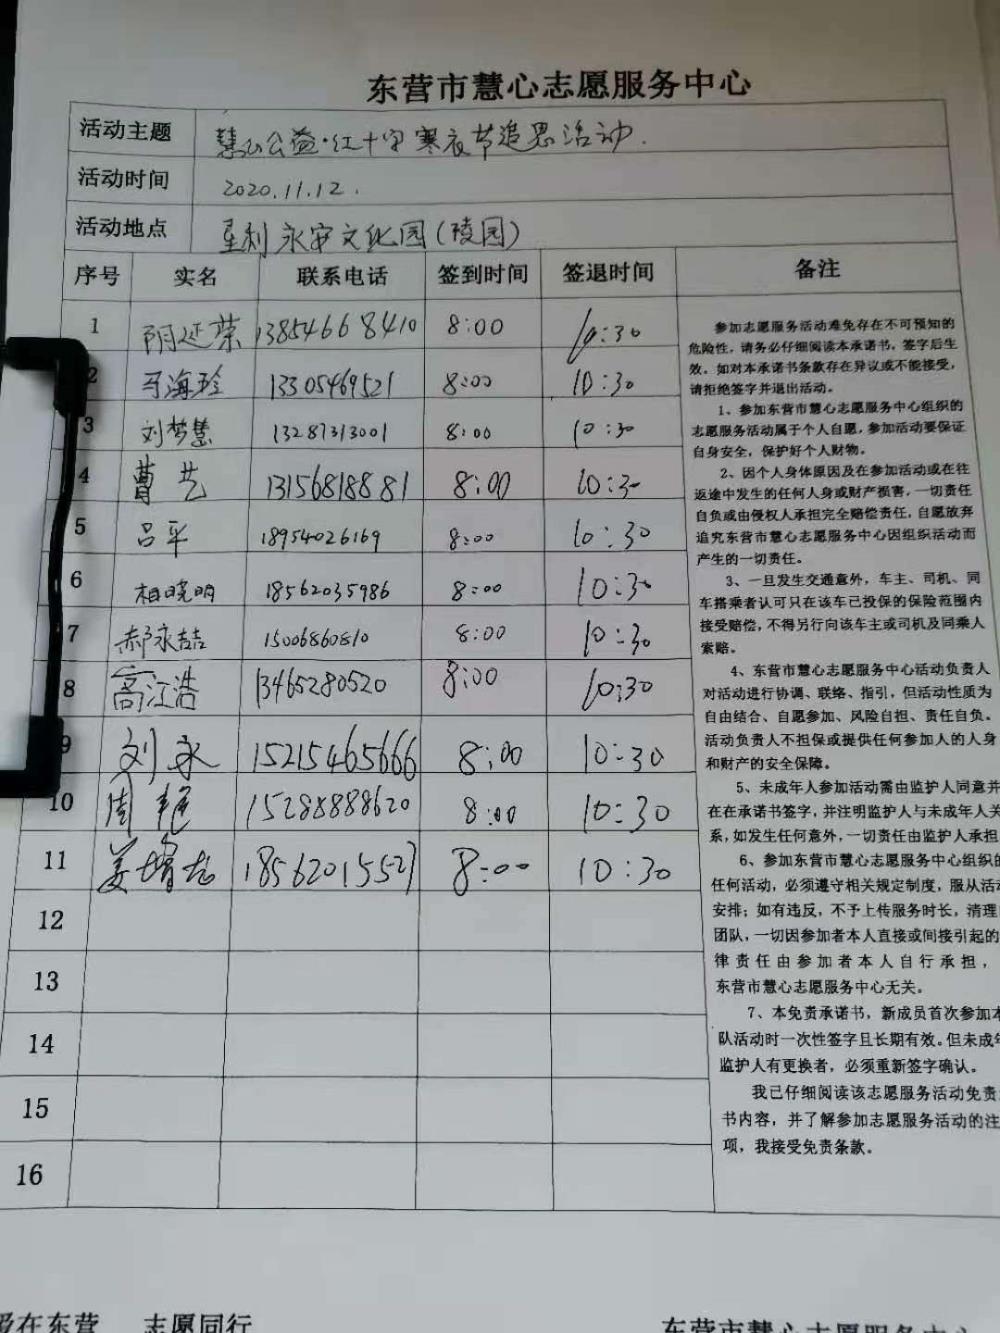 东营市慧心志愿服务中心
活动主题 慧心公益·红十字寒衣节追思活动.
活动时间 2020.11.12.
活动地点 星利永安文化园(陵园)
序号 实名 联系电话 签到时间 签退时间 备注
1 阴延荣 13854668410 8:00 10:30
2 马海珍 13305469521 8:00 10:30
3 刘梦慧 13287313001 8:00 10:30
4 曹艺 13156818881 8:00 10:30
5 吕平 18954026169 8:00 10:30
6 相晓明 18562035986 8:00 10:30
7 郝永喆 15006860810 8:00 10:30
8 高江浩 13465280520 8:00 10:30
9 刘永 15215465666 8:00 10:30
10 周艳 15288888620 8:00 10:30
11 姜增龙 18562015527 8:00 10:30
12
13
14
15
16
参加志愿服务活动难免存在不可预知的
危险性，请务必仔细阅读本承诺书，签字后生
效。如对本承诺书条款存在异议或不能接受，
请拒绝签字并退出活动。
1、参加东营市慧心志愿服务中心组织的
志愿服务活动属于个人自愿，参加活动要保证
自身安全，保护好个人财物。
2、因个人身体原因及在参加活动或在往
返途中发生的任何人身或财产损害，一切责任
自负或由侵权人承担完全赔偿责任，自愿放弃
追究东营市慧心志愿服务中心因组织活动而
产生的一切责任。
3、一旦发生交通意外，车主、司机、同
车搭乘者认可只在该车已投保的保险范围内
接受赔偿，不得另行向该车主或司机及同乘人
索赔。
4、东营市慧心志愿服务中心活动负责人
对活动进行协调、联络、指引，但活动性质为
自由结合、自愿参加、风险自担、责任自负。
活动负责人不担保或提供任何参加人的人身
和财产的安全保障。
5、未成年人参加活动需由监护人同意并
在在承诺书签字，并注明监护人与未成年人关
系，如发生任何意外，一切责任由监护人承担
6、参加东营市慧心志愿服务中心组织的
任何活动，必须遵守相关规定制度，服从活动
安排；如有违反，不予上传服务时长，清理
团队，一切因参加者本人直接或间接引起的
律责任由参加者本人自行承担，
东营市慧心志愿服务中心无关。
7、本免责承诺书，新成员首次参加本
队活动时一次性签字且长期有效。但未成年
监护人有更换者，必须重新签字确认。
我已仔细阅读该志愿服务活动免责
书内容，并了解参加志愿服务活动的注
项，我接受免责条款。
爱在东营 志愿同行 东营市慧心志愿服务中心